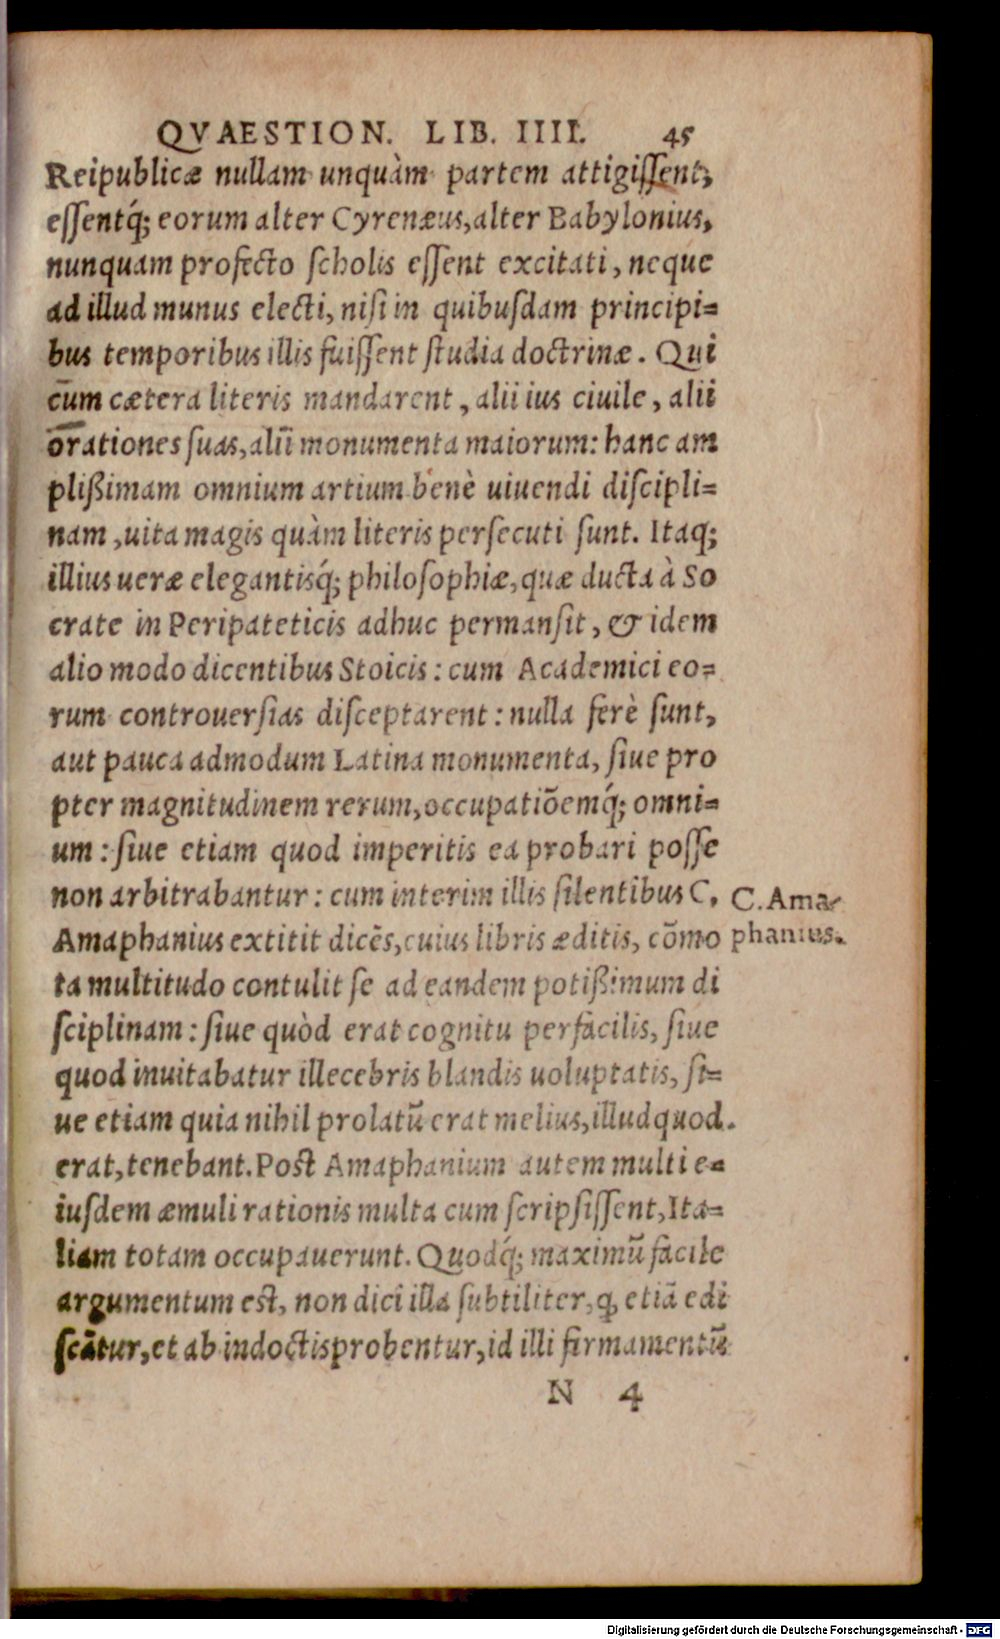 QVAESTION. LIB. IIII. 45
Reipublicæ nullam unquàm partem attigiſſent;
eſſentq́; eorum alter Cyrenæus, alter Babylonius,
nunquam profecto ſcholis eſſent excitati, neque
ad illud munus electi, niſi in quibuſdam principi=
bus temporibus illis fuiſſent ſtudia doctrinæ. Qui
cùm cætera literis mandarent, alii ius ciuile, alii
orationes ſuas, alii monumenta maiorum: hanc am
plißimam omnium artium benè uiuendi diſcipli=
nam, uita magis quàm literis perſecuti ſunt. Itaq;
illius ueræ elegantisq́; philoſophiæ, quæ ducta à So
crate in Peripateticis adhuc permanſit, & idem
alio modo dicentibus Stoicis: cum Academici eo=
rum controuerſias diſceptarent: nulla ferè ſunt,
aut pauca admodum Latina monumenta, ſiue pro
pter magnitudinem rerum, occupatiōemq́; omni=
um: ſiue etiam quod imperitis ea probari poſſe
non arbitrabantur: cum interim illis ſilentibus C.
C. Ama=
phanius.
Amaphanius extitit dicēs, cuius libris æditis, cōmo
ta multitudo contulit ſe ad eandem potißimum di
ſciplinam: ſiue quòd erat cognitu perfacilis, ſiue
quod inuitabatur illecebris blandis uoluptatis, ſi=
ue etiam quia nihil prolatū erat melius, illud quod
erat, tenebant. Poſt Amaphanium autem multi e=
iuſdem æmuli rationis multa cum ſcripſiſſent, Ita=
liam totam occupauerunt. Quodq́; maximū facile
argumentum eſt, non dici illa ſubtiliter, ꝙ etiā edi
ſcātur, et ab indoctis probentur, id illi firmamentū
N 4
Digitalisierung gefördert durch die Deutsche Forschungsgemeinschaft - DFG